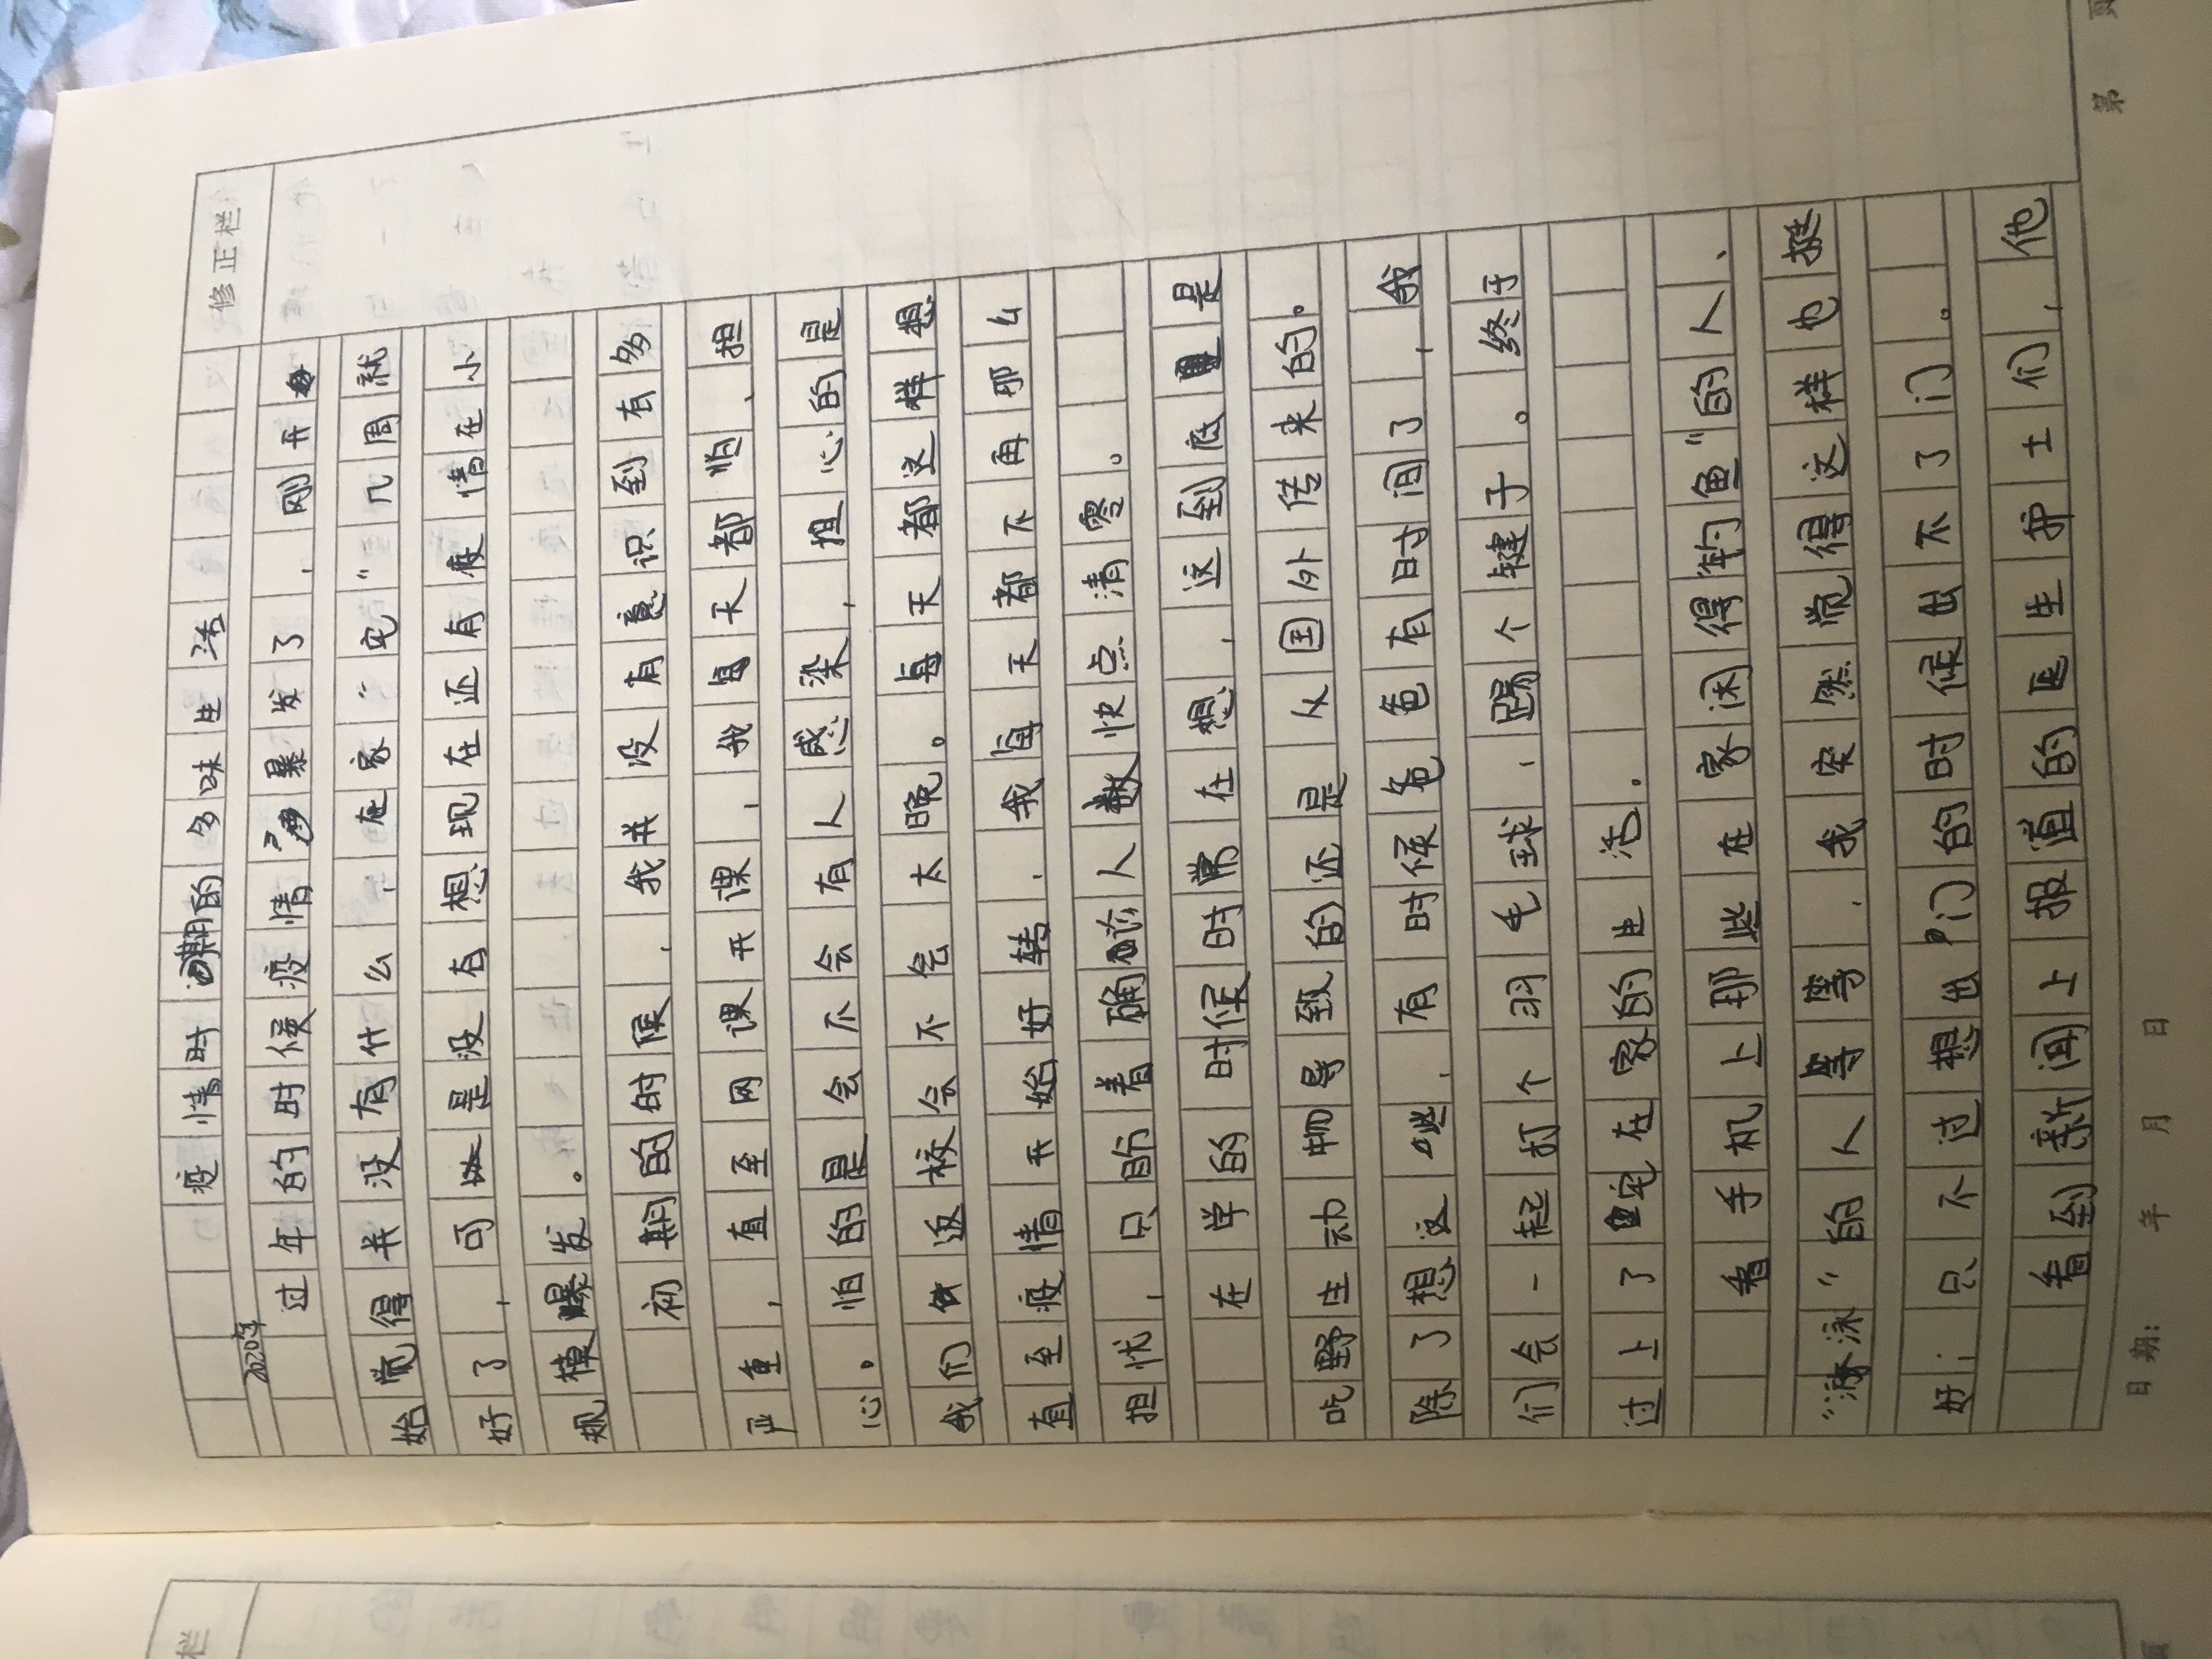 修正栏
疫情时期的多味生活
2020年
过年的时候疫情暴发了,刚开
始觉得并没有什么,在家“宅”几周就
好了,可是没有想现在还有疫情在小
规模爆发。
初期的时候,我并没有意识到有多
严重,直至网课开课,我每天都怕、担
心。怕的是会不会有人感染,担心的是
我们返校会不会太晚。每天都这样想
直至疫情开始好转,我每天都不再那么
担忧,只盼着确诊人数快点清零。
在学的时候时常在想,这到底是
吃野生动物导致的还是从国外传来的。
除了想这些,有时候爸爸有时间了,我
们会一起打个羽毛球,踢个毽子。终于
过上了宅在家的生活.
看手机上那些在家闲得钓鱼“的人、
“游泳”的人等等,我突然觉得这样也挺
好;只不过想出门的时候出不了门。
看到新闻上报道的医生护士们,他
日期: 年 月 日
第 页
栏